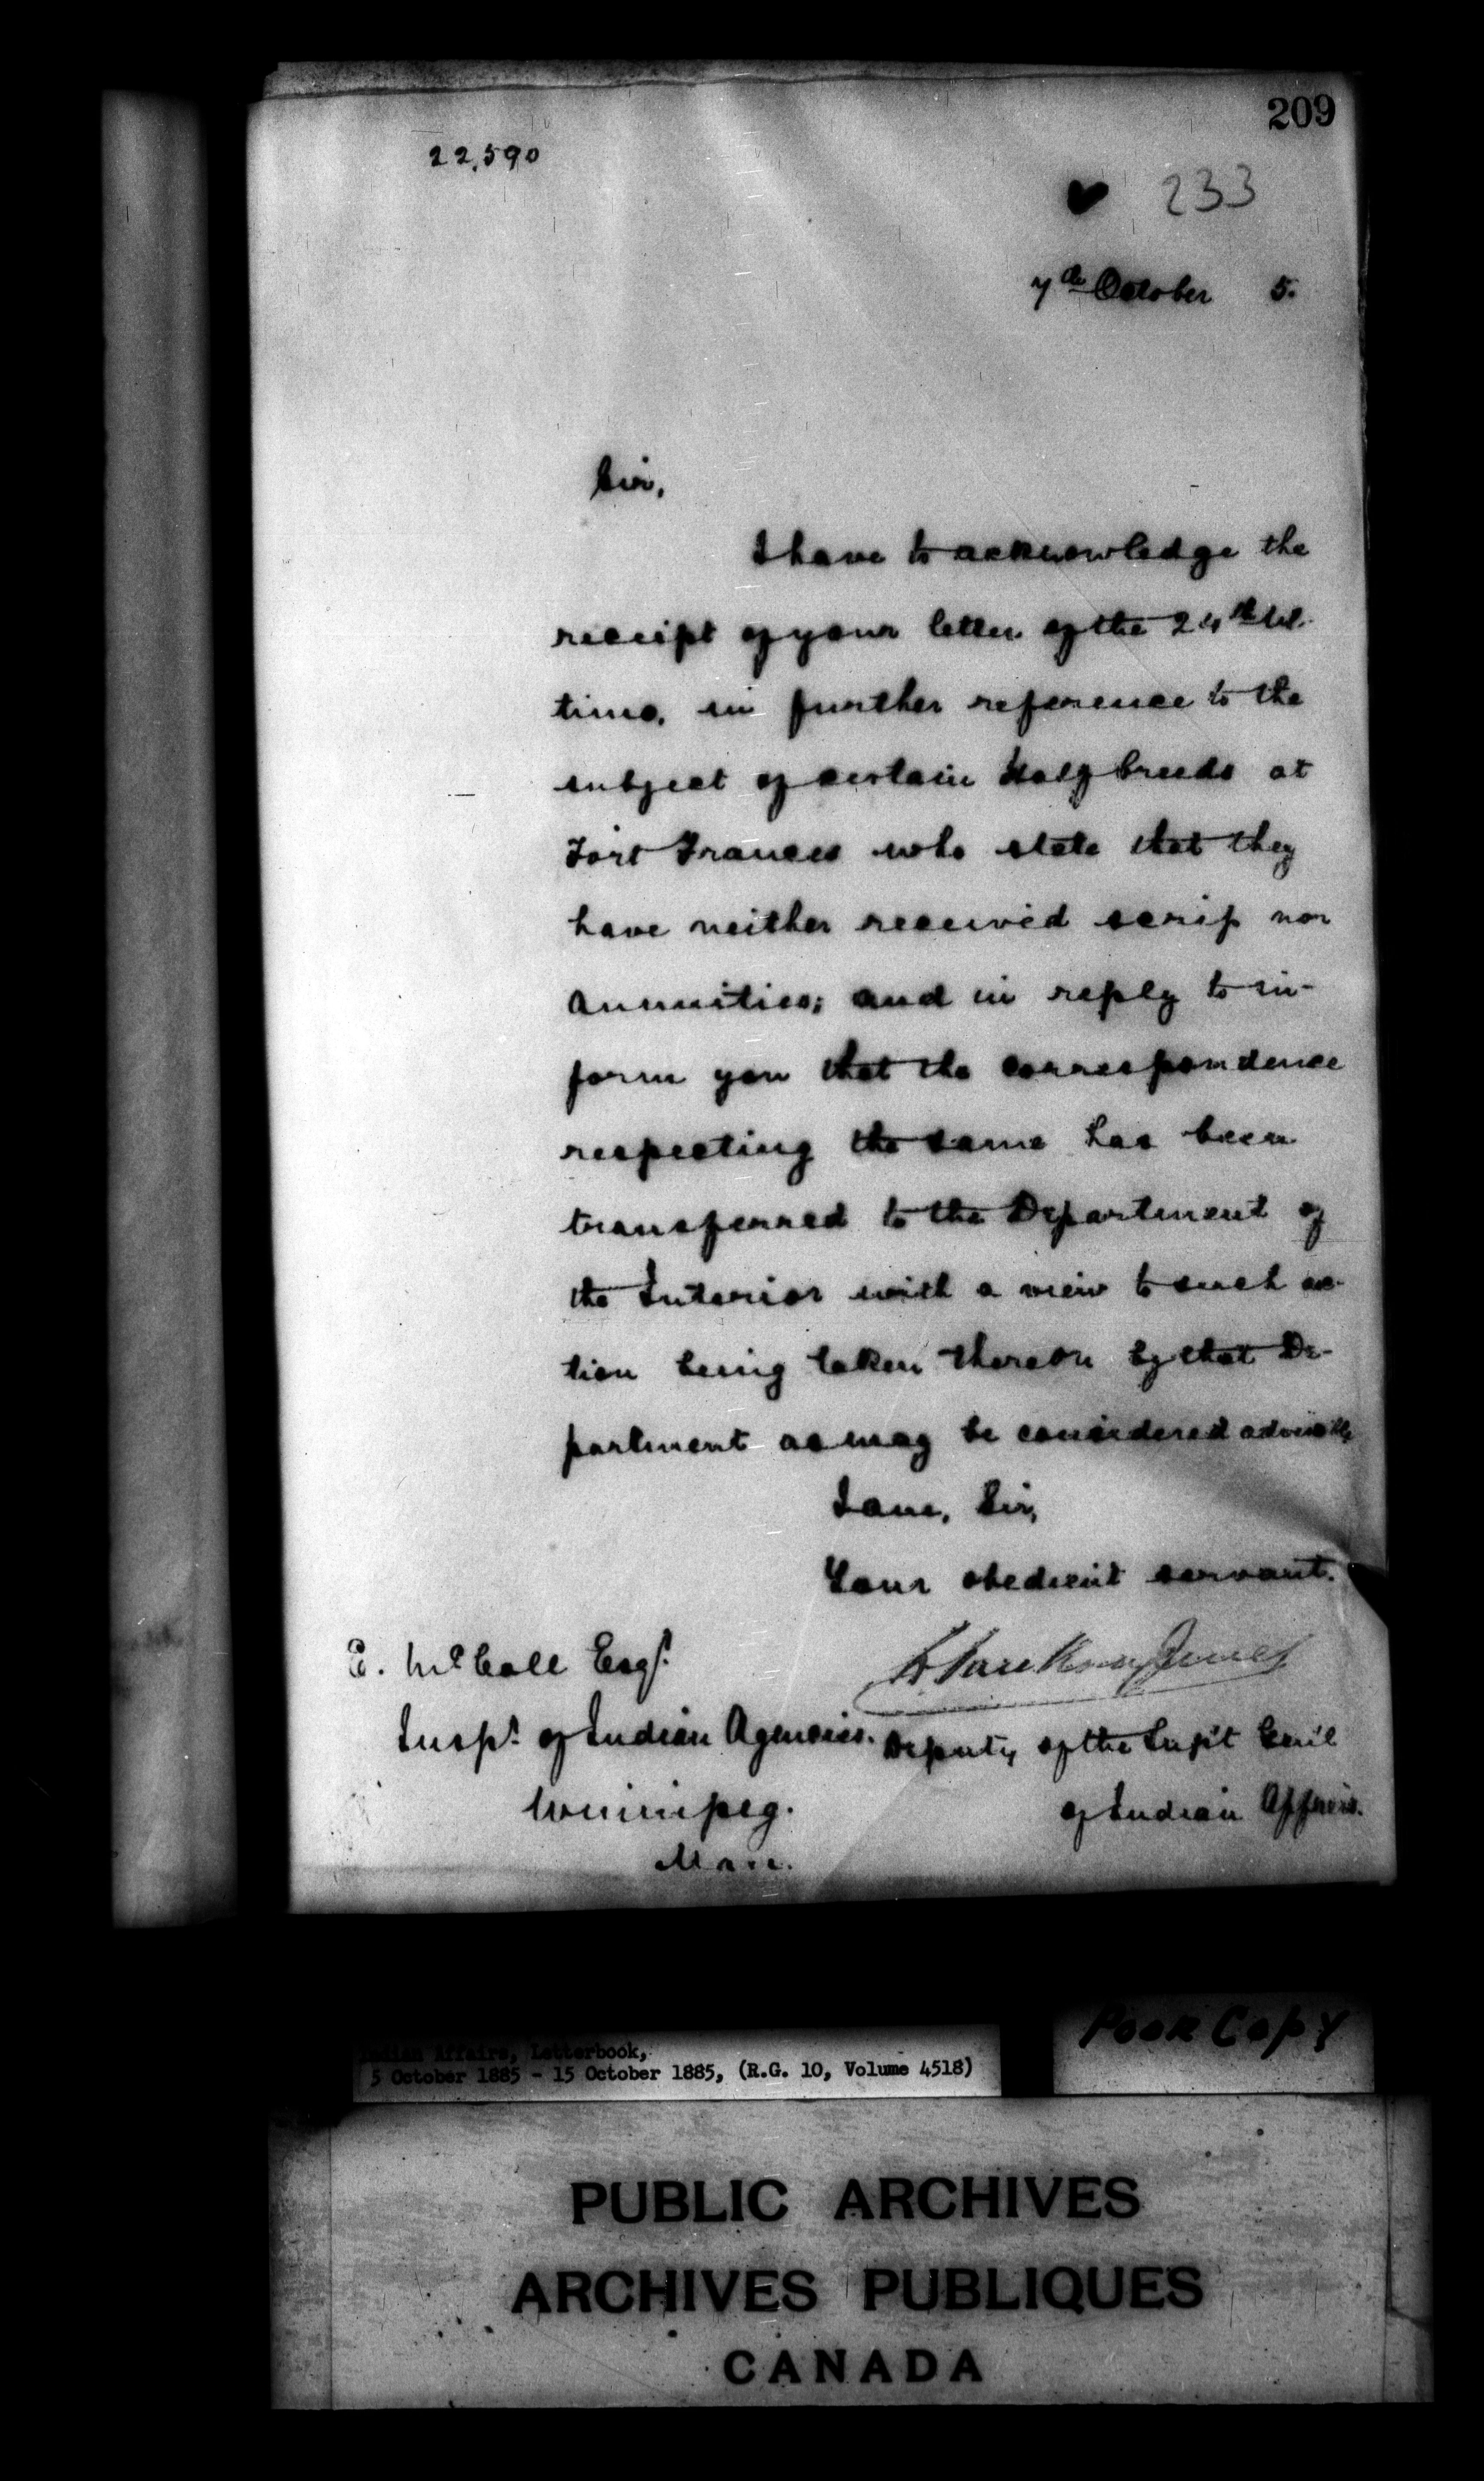 209
22,590
233
7th October 5.
Sir,
I have to acknowledge the
receipt of your letter of the 24th Ul-
timo, in further reference to the
subject of certain Halfbreeds at
Fort Frances who state that they
have neither received scrip nor
annuities; and in reply to in-
form you that the correspondence
respecting the same has been
transferred to the Department of
the Interior with a view to such ac-
tion being taken thereon by that De-
partment as may be considered advisable
I am, Sir,
Your obedient servant.
E. McColl Esqr.
Inspr. of Indian Agencies.
Winnipeg.
Man.
Deputy of the Supt Gen'l
of Indian Affairs.
Poor Copy
Indian Affairs, Letterbook,
5 October 1885 - 15 October 1885, (R.G. 10, Volume 4518)
PUBLIC ARCHIVES
ARCHIVES PUBLIQUES
CANADA